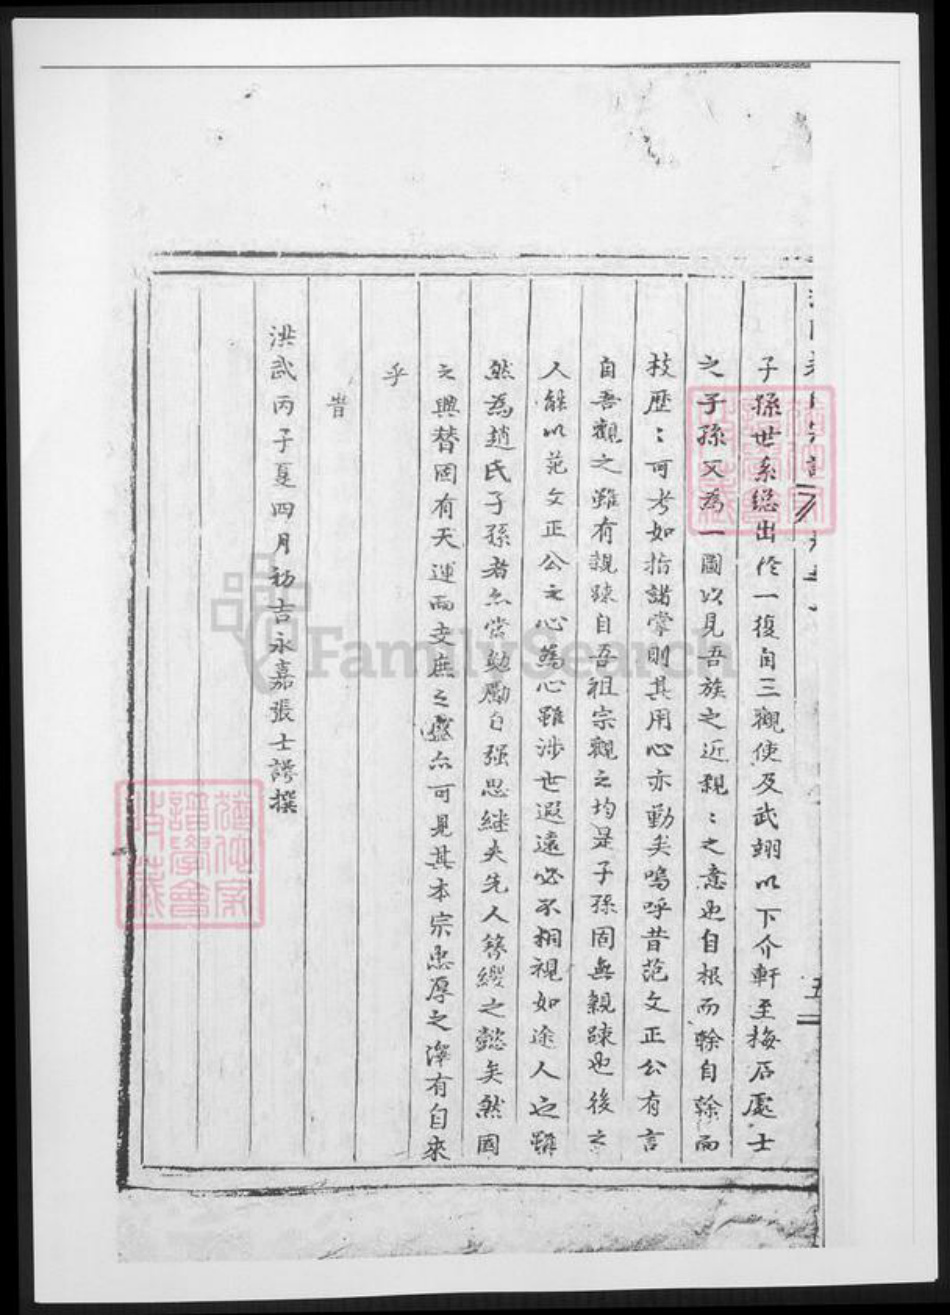 子孫世系總出伀一復自三觀使及武翊以下介軒至梅石處士
之子孫又為一圖以見吾族之近親〻之意也自根而榦自榦而
枝歷〻可考如指諸掌則其用心亦勤矣嗚呼昔范文正公有言
自吾觀之雖有親踈自吾祖宗觀之均是子孫固無親踈也後之
人能以范文正公之心為心雖涉世遐遠必不相視如途人也雖
然為趙氏子孫者亦當勉勵自强思継夫先人簪纓之懿矣然國
之興替固有天運而支庶之盛亦可見其本宗忠厚之澤有自來
乎
旹
洪武丙子夏四月初吉永嘉張士謬撰
五
FamilySearch